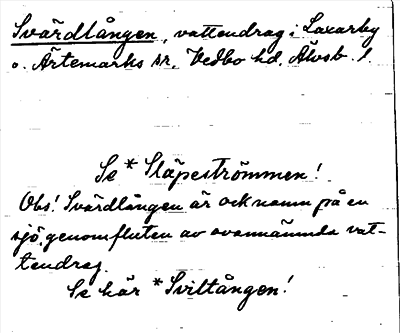 Svärdlången, vattendrag i Laxarby
o. Ärtemarks sr, Vedbo hd, Älvsb. l.
Se * Släpeströmmen!
Obs! Svärdlången är ock namn på en
sjö, genomfluten av ovannämnda vat-
tendrag.
Se här * Sviltången!